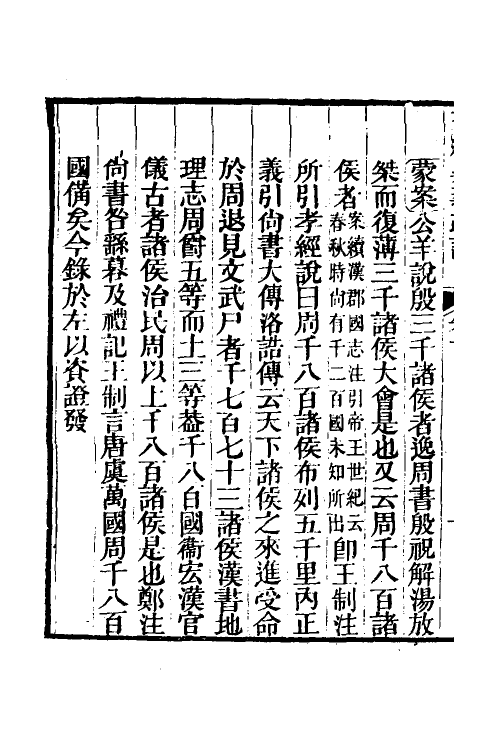 蒙案公羊說殷三千諸侯者逸周書殷祝解湯放
桀而復薄三千諸侯大會是也又云周千八百諸
侯者案續漢郡國志注引帝王世紀云春秋時尚有千二百國未知所出即王制注
所引孝經說曰周千八百諸侯布列五千里內正
義引尚書大傳洛誥傳云天下諸侯之來進受命
於周退見文武尸者千七百七十三諸侯漢書地
理志周爵五等而土三等葢千八百國衞宏漢官
儀古者諸侯治民周以上千八百諸侯是也鄭注
尚書咎繇暮及禮記王制言唐虞萬國周千八百
國備矣今錄於左以資證發